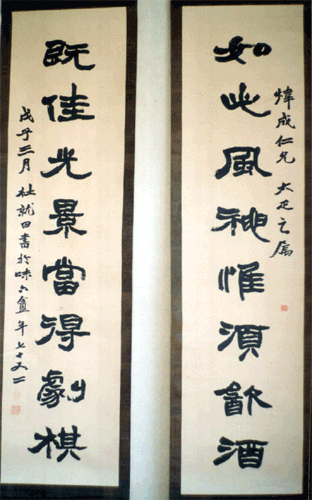 如此風神惟須飲酒
煒成仁兄 大疋之屬
既佳光景當得劇棋
戊子三月 杜就田書於味六盦 年七十又二